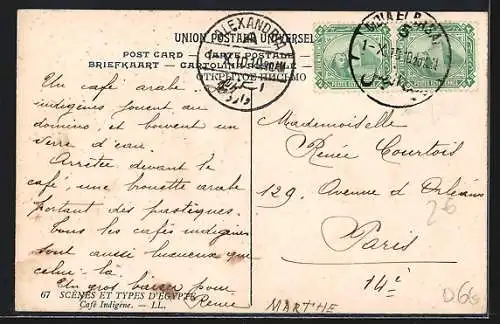 UNION POSTALE UNIVERSEL
POST CARD — CARTE POSTALE
BRIEFKAART — CARTOLINA POSTALE
ОТКРЫТОЕ ПИСЬМО
ALEXANDRIA
Un café arabe.
indigènes jouent au
domino, et boivent un
verre d'eau.
Arrêtée devant le
café, une brouette arabe
portant des pastèques.
Tous les cafés indigènes
sont aussi luxueux que
celui-là.
Un gros baiser pour
Renée
67 SCÈNES ET TYPES D'EGYPTE
Café Indigène. — LL.
Mademoiselle
Renée Courtois
129, Avenue d'Orléans
26
Paris
14e
MARTHE